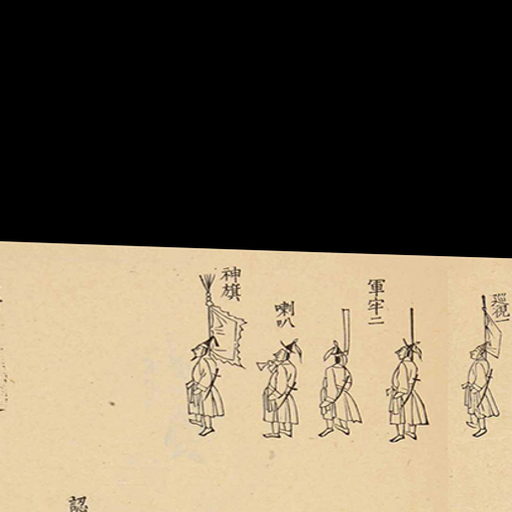 巡視一
軍牢二
喇叭
神旗
認